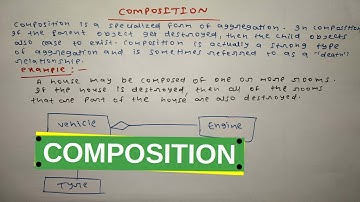 COMPOSITION
Composition is a specialized form of aggregation. In composition
if the parent object get destroyed, then the child objects
also cease to exist. Composition is actually a strong type
of aggregation and is sometimes referred to as a "death"
relationship.
Example:-
A house may be composed of one or more rooms.
If the house is destroyed, then all of the rooms
that are part of the house are also destroyed.
Vehicle
Engine
COMPOSITION
Tyre